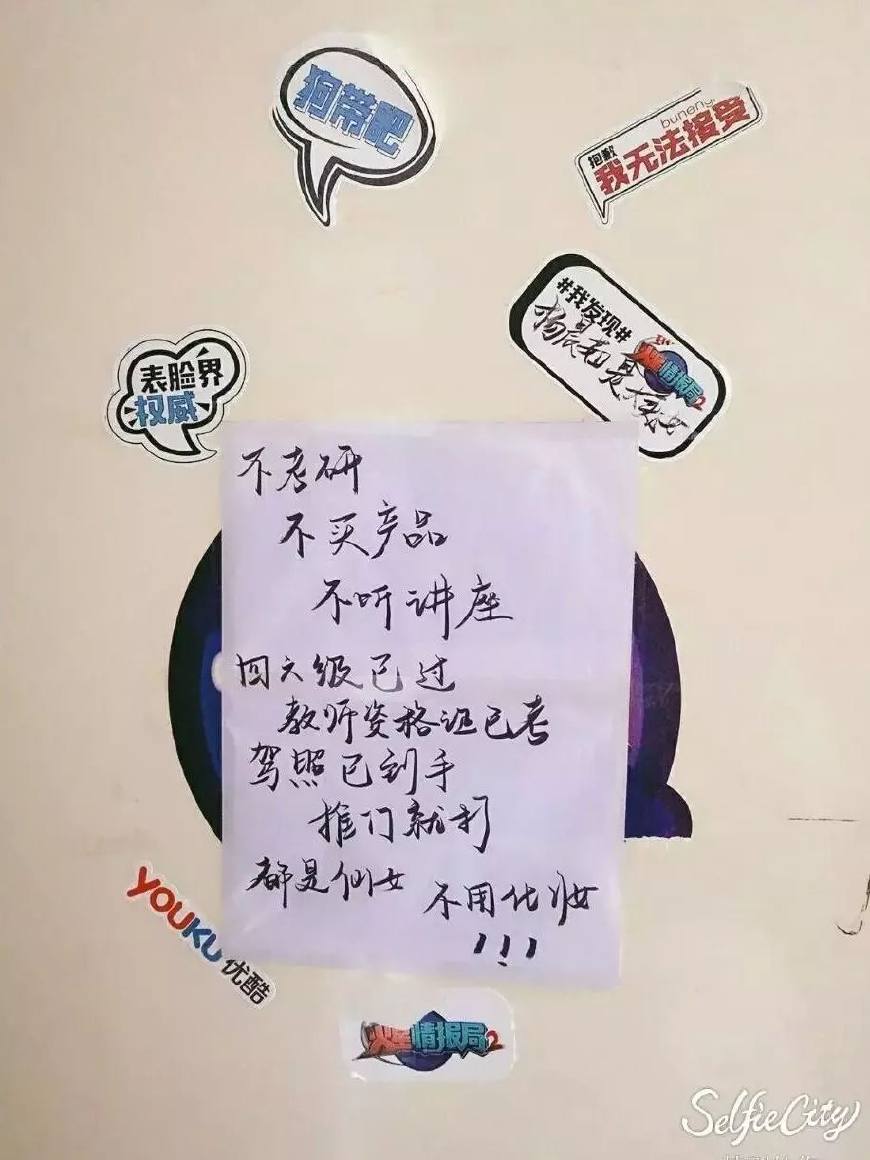 狗带吧
buneng
抱歉
我无法接受
#我发现#
火星情报局2
表脸界
权威
不考研
不买产品
不听讲座
四六级已过
教师资格证已考
驾照已到手
推门就打
都是仙女
不用化妆
!!!
YOUKU
优酷
火星情报局2
SelfieCity